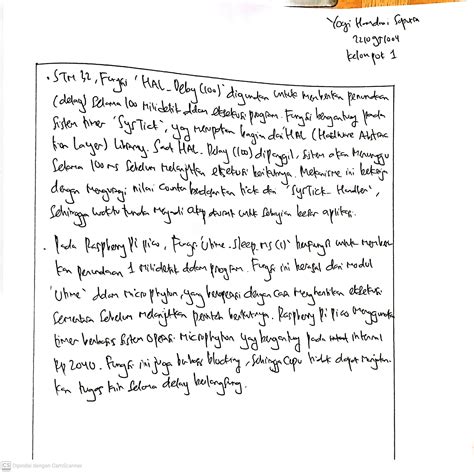 Yogi Hendri Saputra
2210951004
Kelompok 1
• STM 32, Fungsi 'HAL_Delay (100)' digunakan untuk memberikan penundaan
(delay) selama 100 milidetik dalam eksekusi program. Fungsi bergantung pada
sistem timer 'SysTick', yang merupakan bagian dari HAL (Hardware Abstrac
tion Layer) Library. Saat HAL_Delay (100) dipanggil, sistem akan menunggu
selama 100 ms sebelum melanjutkan eksekusi berikutnya. Mekanisme ini bekerja
dengan mengurangi nilai counter berdasarkan tick dari 'SysTick_Handler',
sehingga waktu tunda menjadi cukup akurat untuk sebagian besar aplikasi.
• Pada Raspberry Pi Pico, Fungsi Utime.sleep_ms(1) berfungsi untuk member
kan penundaan 1 milidetik dalam program. Fungsi ini berasal dari modul
'Utime' dalam micropython, yang beroperasi dengan cara menghentikan eksekusi
sementara sebelum melanjutkan perintah berikutnya. Raspberry Pi Pico menggunakan
timer berbasis sistem operasi micropython yang bergantung pada internal
RP 2040. Fungsi ini juga bersifat blocking, sehingga CPU tidak dapat menjalan
kan tugas lain selama delay berlangsung.
Dipindai dengan CamScanner